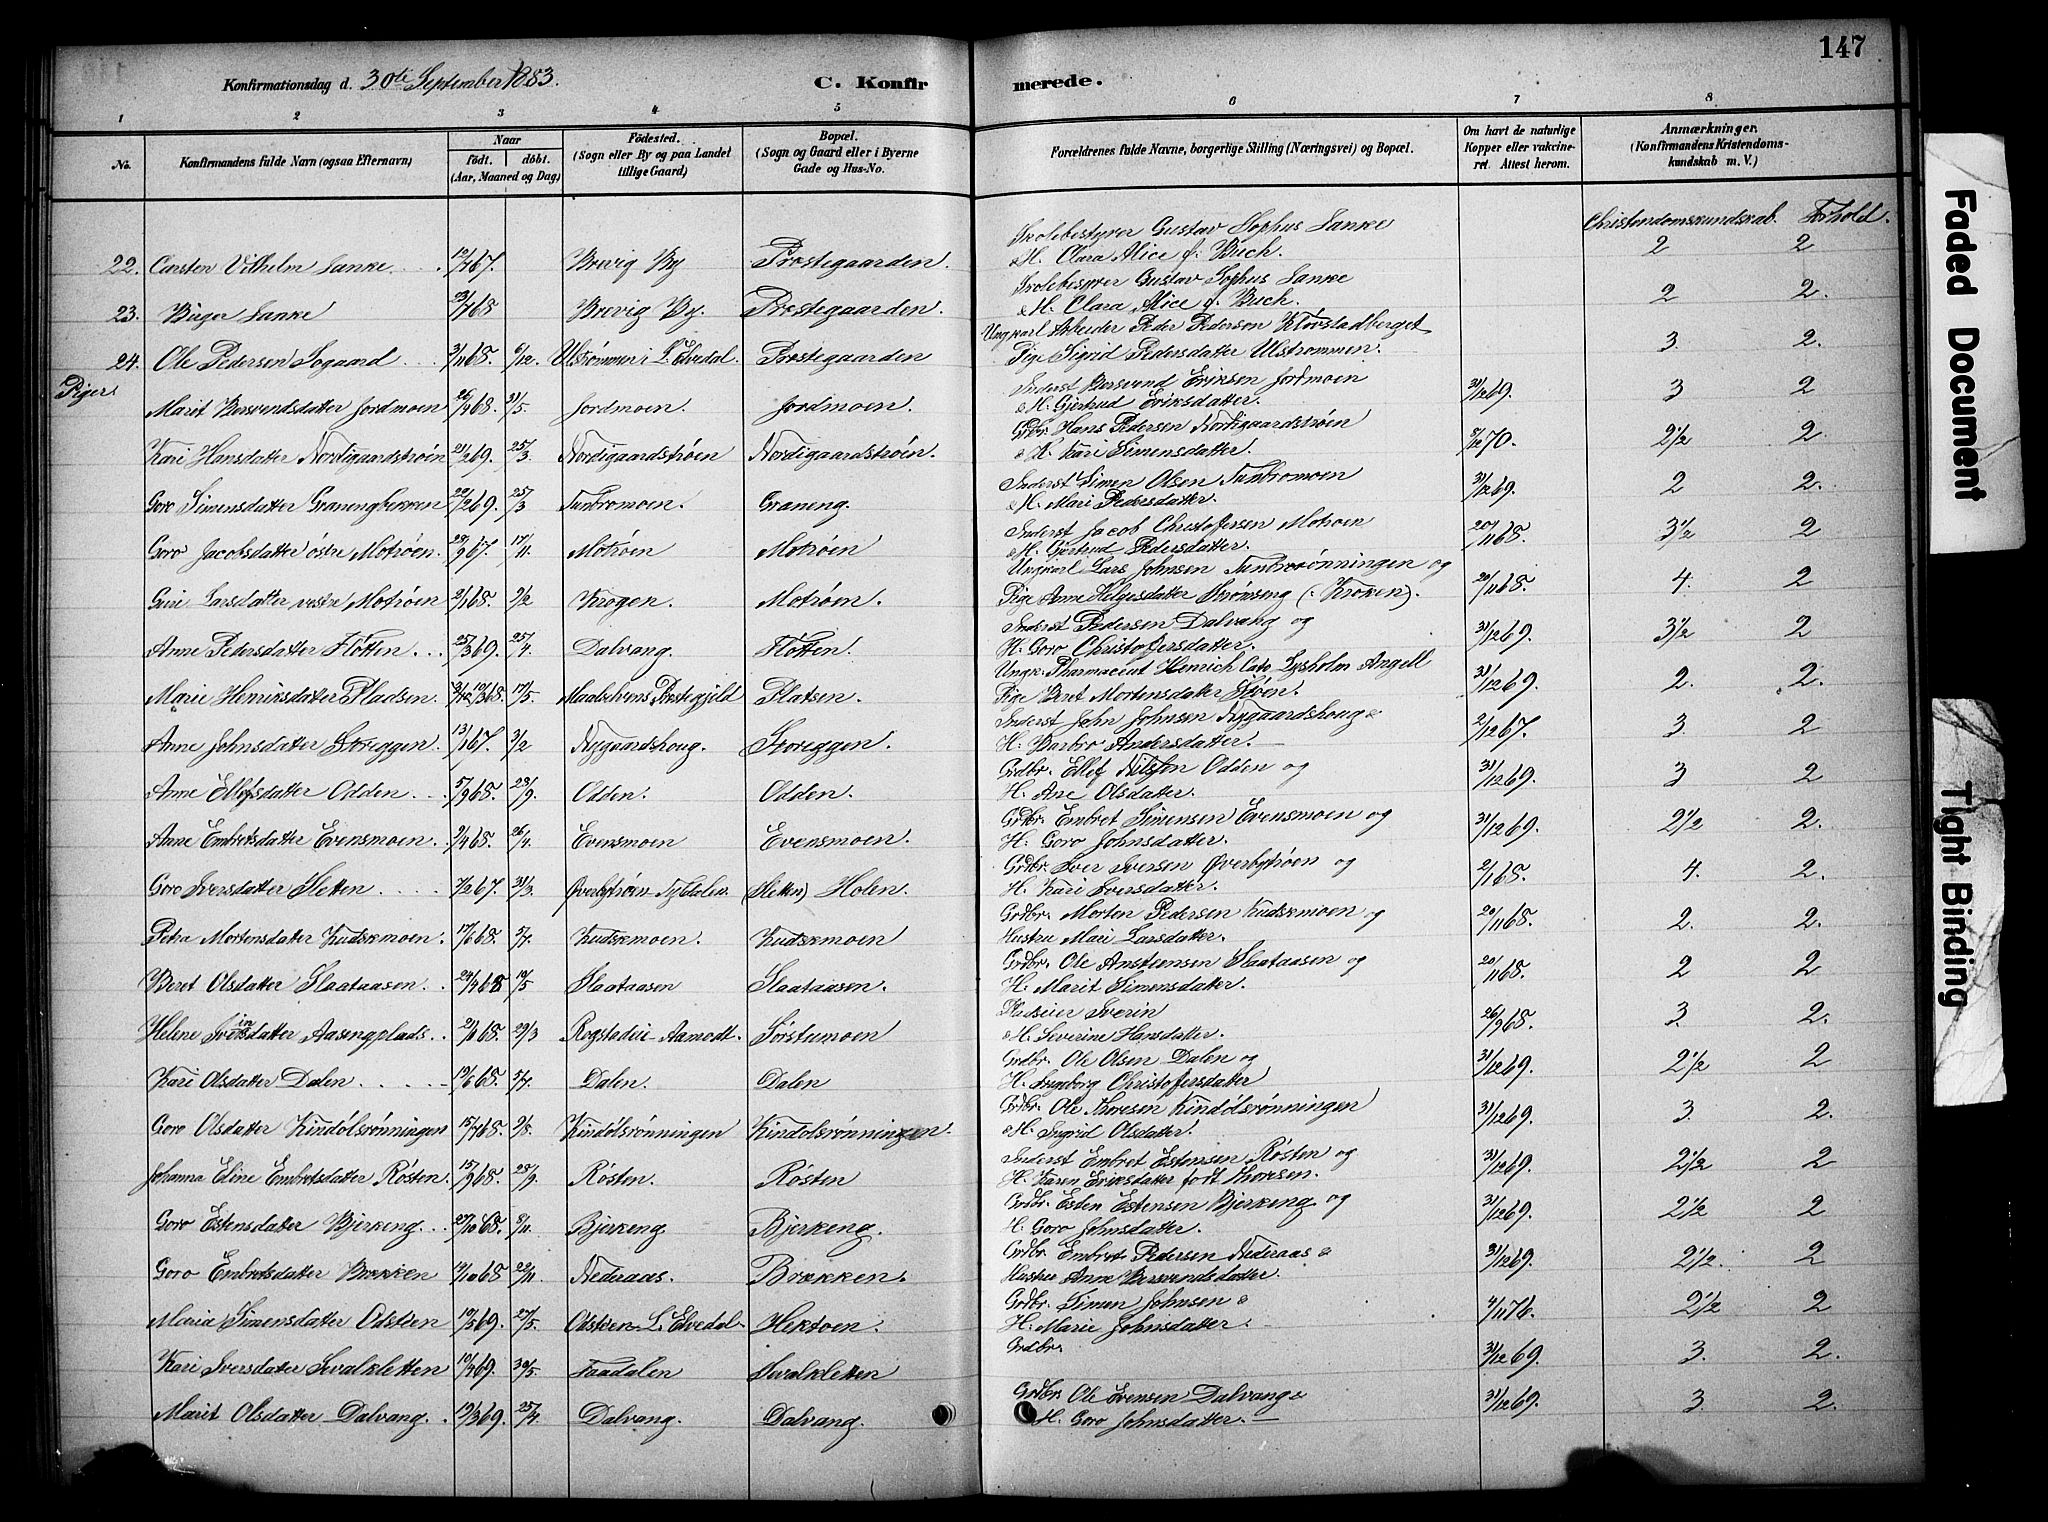 147
Konfirmationsdag d. 30te September 1883.
C. Konfirmerede.
1 2 3 4 5 6 7 8
No. Konfirmandens fulde Navn (ogsaa Efternavn) Naar födt. döbt. (Aar, Maaned og Dag) Födested. (Sogn eller By og paa Landet tillige Gaard) Bopæl. (Sogn og Gaard eller i Byerne Gade og Hus-No. Forældrenes fulde Navne, borgerlige Stilling (Næringsvei) og Bopæl. Om havt de naturlige Kopper eller vakcineret. Attest herom. Anmærkninger. (Konfirmandens Kristendomskundskab m. V.)
Christendomskundskab. Forhold.
Skolebestyrer Gustav Sophus Lanke
22. Carsten Vilhelm Lanke 12/7 67. Brevig By Præstegaarden. & H. Clara Alice f. Buch. 2 2
Skolebestyrer Gustav Sophus Lanke
23. Birger Lanke 23/7 68 Brevig By. Præstegaarden. & H. Clara Alice f. Buch. 2 2.
Ungkarl Arbeider Peder Pedersen Kløvstadberget
24. Ole Pedersen Sogaard 3/11 68. 6/12. Ulstrømmen i L. Elvedal. Præstegaarden Pige Sigrid Pedersdatter Ulstrommen. 3. 2.
Piger
Inderst Bersvend Eriksen Jordmoen
Marit Bersvendsdatter Jordmoen 26/4 68. 31/5. Jordmoen. Jordmoen. & H. Gjertrud Eriksdatter. 31/12 69. 3 2
Grdbr. Hans Pedersen Nordigaardstrøen
Kari Hansdatter Nordigaardstrøen 21/2 69. 25/3 Nordigaardstrøen Nordigaardstrøen. & H. Kari Simensdatter. 8/12 70. 2 1/2 2.
Inderst Simen Olsen Tunbromoen
Goro Simensdatter Granengbækken 22/2 69. 25/3 Tunbromoen. Graneng. & H. Mari Pedersdatter. 31/12 69. 2 2.
Inderst Jacob Christofersen Motrøen
Goro Jacobsdatter østre Motrøen. 29/9 67. 17/11. Motrøen Motrøen & H. Gjertrud Pedersdatter. 20/11 68. 3 1/2 2
Ungkarl Lars Johnsen Tunbrorønningen og
Guri Larsdatter vestre Motrøen 2/1 68. 2/2 Krogen. Motrøen. Pige Anne Helgesdatter Strømeng (: Kroken). 20/11 68. 4. 2
Inderst Pedersen Dalvang og
Anne Pedersdatter Fløtten. 25/3 69. 25/4. Dalvang. Fløtten. H. Goro Christofersdatter. 31/12 69. 3 1/2 2
Ungk. Pharmaceut Henrich Cato Lysholm Angell
Marie Henriksdatter Pladsen 10/3 68. 17/5. Maalselvens Præstegjeld Platsen. Pige Beret Mortensdatter Strøen. 31/12 69. 2. 2.
Inderst John Johnsen Nygaardshoug &
Anne Johnsdatter Storeggen. 13/1 67. 3/2 Nygaardshoug. Storeggen. H. Barbro Andersdatter. 2/12 67. 3. 2
Grdbr. Ellef Nilssen Odden og
Anne Ellefsdatter Odden. 5/9 68. 23/9. Odden. Odden. H. Ane Olsdatter. 31/12 69. 3 2
Grdbr. Embret Simensen Evensmoen og
Anne Embretsdatter Evensmoen. 2/4 68. 26/4. Evensmoen Evensmoen. H. Goro Johnsdatter. 31/12 69. 2 1/2 2.
Grdbr. Iver Iversen Øverbytrøen og
Goro Iversdatter Sletten 7/2 67. 31/3. Øverbytrøen Tyldalen. (Sletten) Holen. H. Kari Iversdatter. 2/1 68. 4. 2.
Grdbr. Morten Pedersen Kudskmoen og
Petra Mortensdatter Kudskmoen. 17/6 68. 5/7. Kudskmoen. Kudskmoen Hustru Mari Larsdatter. 20/11 68. 2. 2.
Grdbr. Ole Amstensen Slaataasen og
Beret Olsdatter Slaataasen. 24/4 68 10/5 Slaataasen Slaataasen. H. Marit Simensdatter. 20/11 68. 2 2
Pladseier Sverin
Helene Sverinsdatter Aasengplads. 29/3 Rogstadeie Aamodt. Sørstumoen & H. Severine Hansdatter. 26/9 68. 3. 2.
Grdbr. Ole Olsen Dalen og
Kari Olsdatter Dalen. 19/6 68. 5/7. Dalen. Dalen H. Ingeborg Christofersdatter 31/12 69. 2 1/2 2
Grdbr. Ole Thoresen Kindølsrønningen
Goro Olsdatter Kindølsrønningen 15/7 68. 2/8. Kindølsrønningen Kindølsrønningen. & H. Ingrid Olsdatter. 31/12 69. 3. 2.
Inderst Embret Estensen Røsten og
Johanna Eline Embretsdatter Røsten. 15/9 68. 28/9. Røsten. Røsten H. Karen Eriksdatter født Thoresen. 31/12 69. 2 1/2 2
Grdbr. Esten Estensen Bjerkeng og
Goro Estensdatter Bjerkeng. 27/10 68. 8/11. Bjerkeng Bjerkeng. H. Goro Johnsdatter. 31/12 69. 2 1/2 2
Grdbr. Embret Pedersen Nederaas &
Goro Embretsdatter Bækken 19/10 68 22/11. Nederaas. Brækken. Hustru Anne Bersvendsdatter. 31/12 69. 2 1/2. 2
Grdbr. Simen Johnsen &
Maria Simensdatter Odstøen 10/5 69. 27/5. Odstøen L. Elvedal Hektoen. H. Marie Johnsdatter. 4/11 76. 2 1/2 2
Grdbr.
Kari Iversdatter Svalkletten 10/4 69. 30/5. Faadalen Svalkletten 31/12 69. 3. 2.
Grdbr. Ole Evensen Dalvang &
Marit Olsdatter Dalvang. 19/3 69. 25/4. Dalvang. Dalvang. H. Goro Johnsdatter. 31/12 69. 3. 2.
Faded Document
Tight Binding